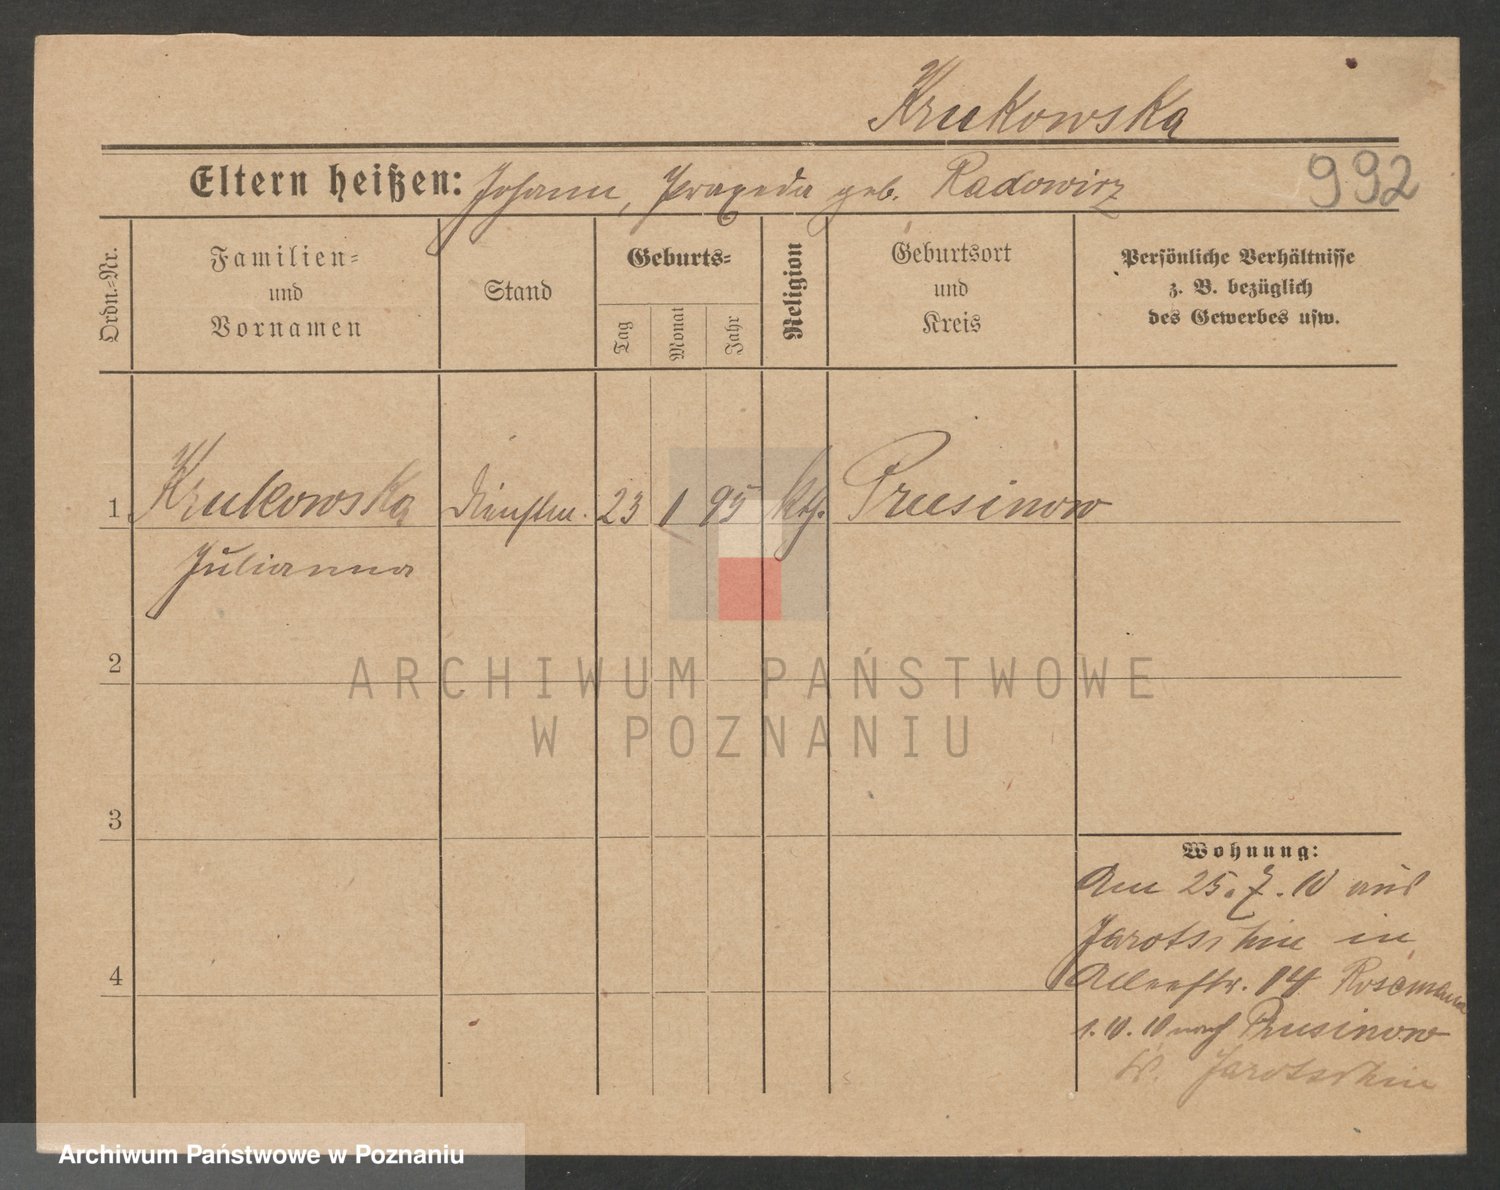 Krukowska
Eltern heißen: Johann, Praxeda geb. Radowicz
992
Ordn.-Nr.
Familien-
und
Vornamen
Stand
Geburts-
Tag
Monat
Jahr
Religion
Geburtsort
und
Kreis
Persönliche Verhältnisse
z. B. bezüglich
des Gewerbes usw.
1. Krukowska Dienstm. 23 1 95 kth. Prusinow
Julianna
2
ARCHIWUM PAŃSTWOWE
W POZNANIU
3
Wohnung:
Am 25.7.10 aus
Jarotschin in
14 Rosemann
4
1.10.10 nach Prusinow
K. Jarotschin
Archiwum Państwowe w Poznaniu